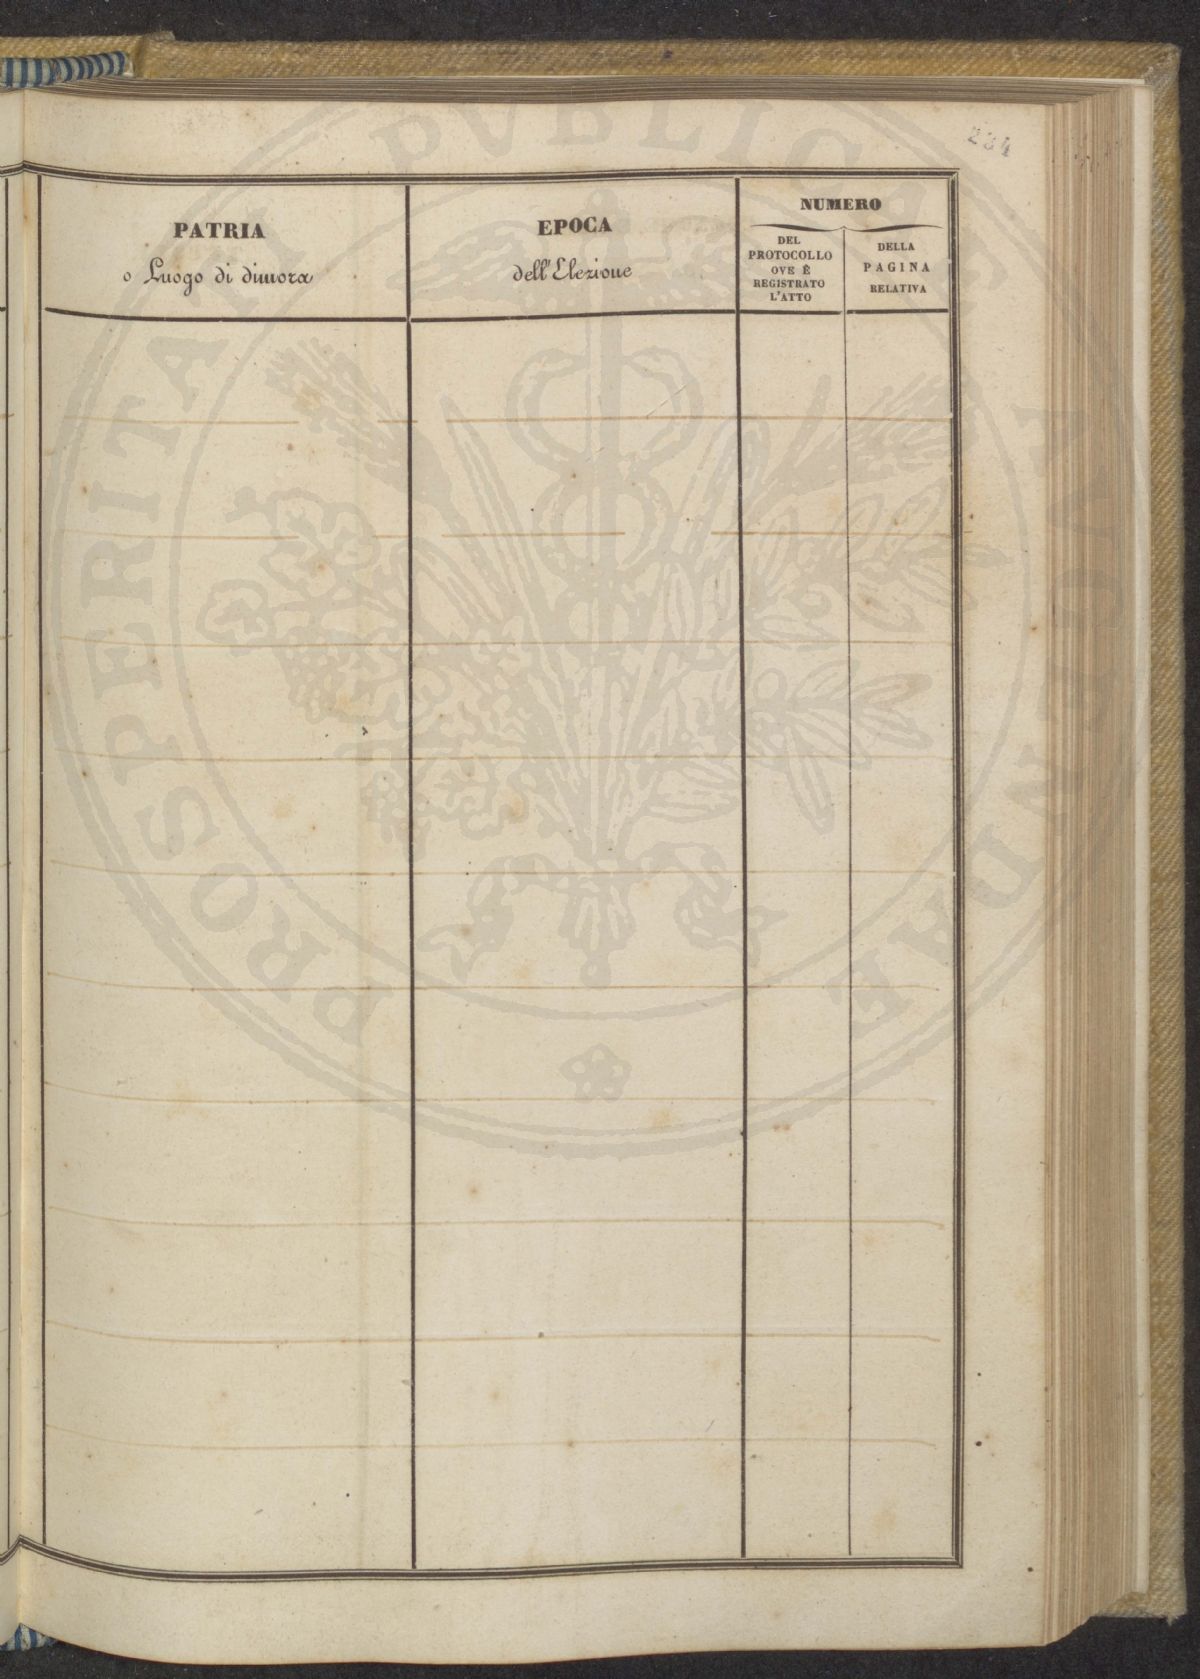 234
PATRIA
o Luogo di dimora
EPOCA
dell'Elezione
NUMERO
DEL
PROTOCOLLO
OVE È
REGISTRATO
L'ATTO
DELLA
PAGINA
RELATIVA
PROSPERITATI PVBLICAE AVGENDAE